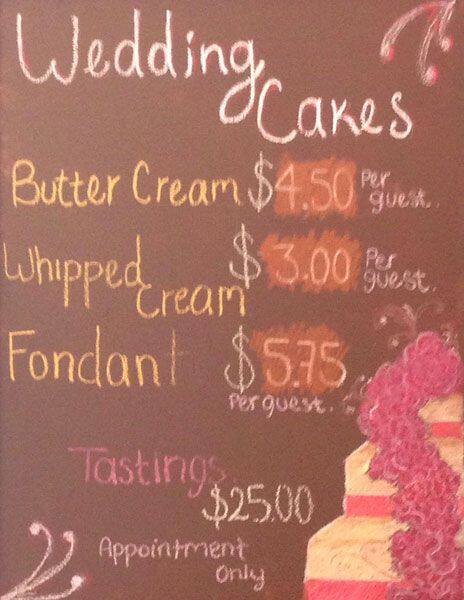 Wedding
Cakes
Butter Cream $4.50 Per guest.
Whipped Cream $3.00 Per guest.
Fondant $5.75
Per guest.
Tastings
$25.00
Appointment
only